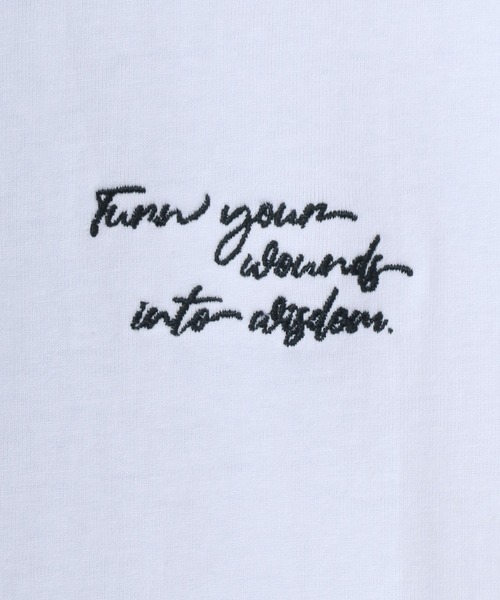 Turn your
wounds
into wisdom.